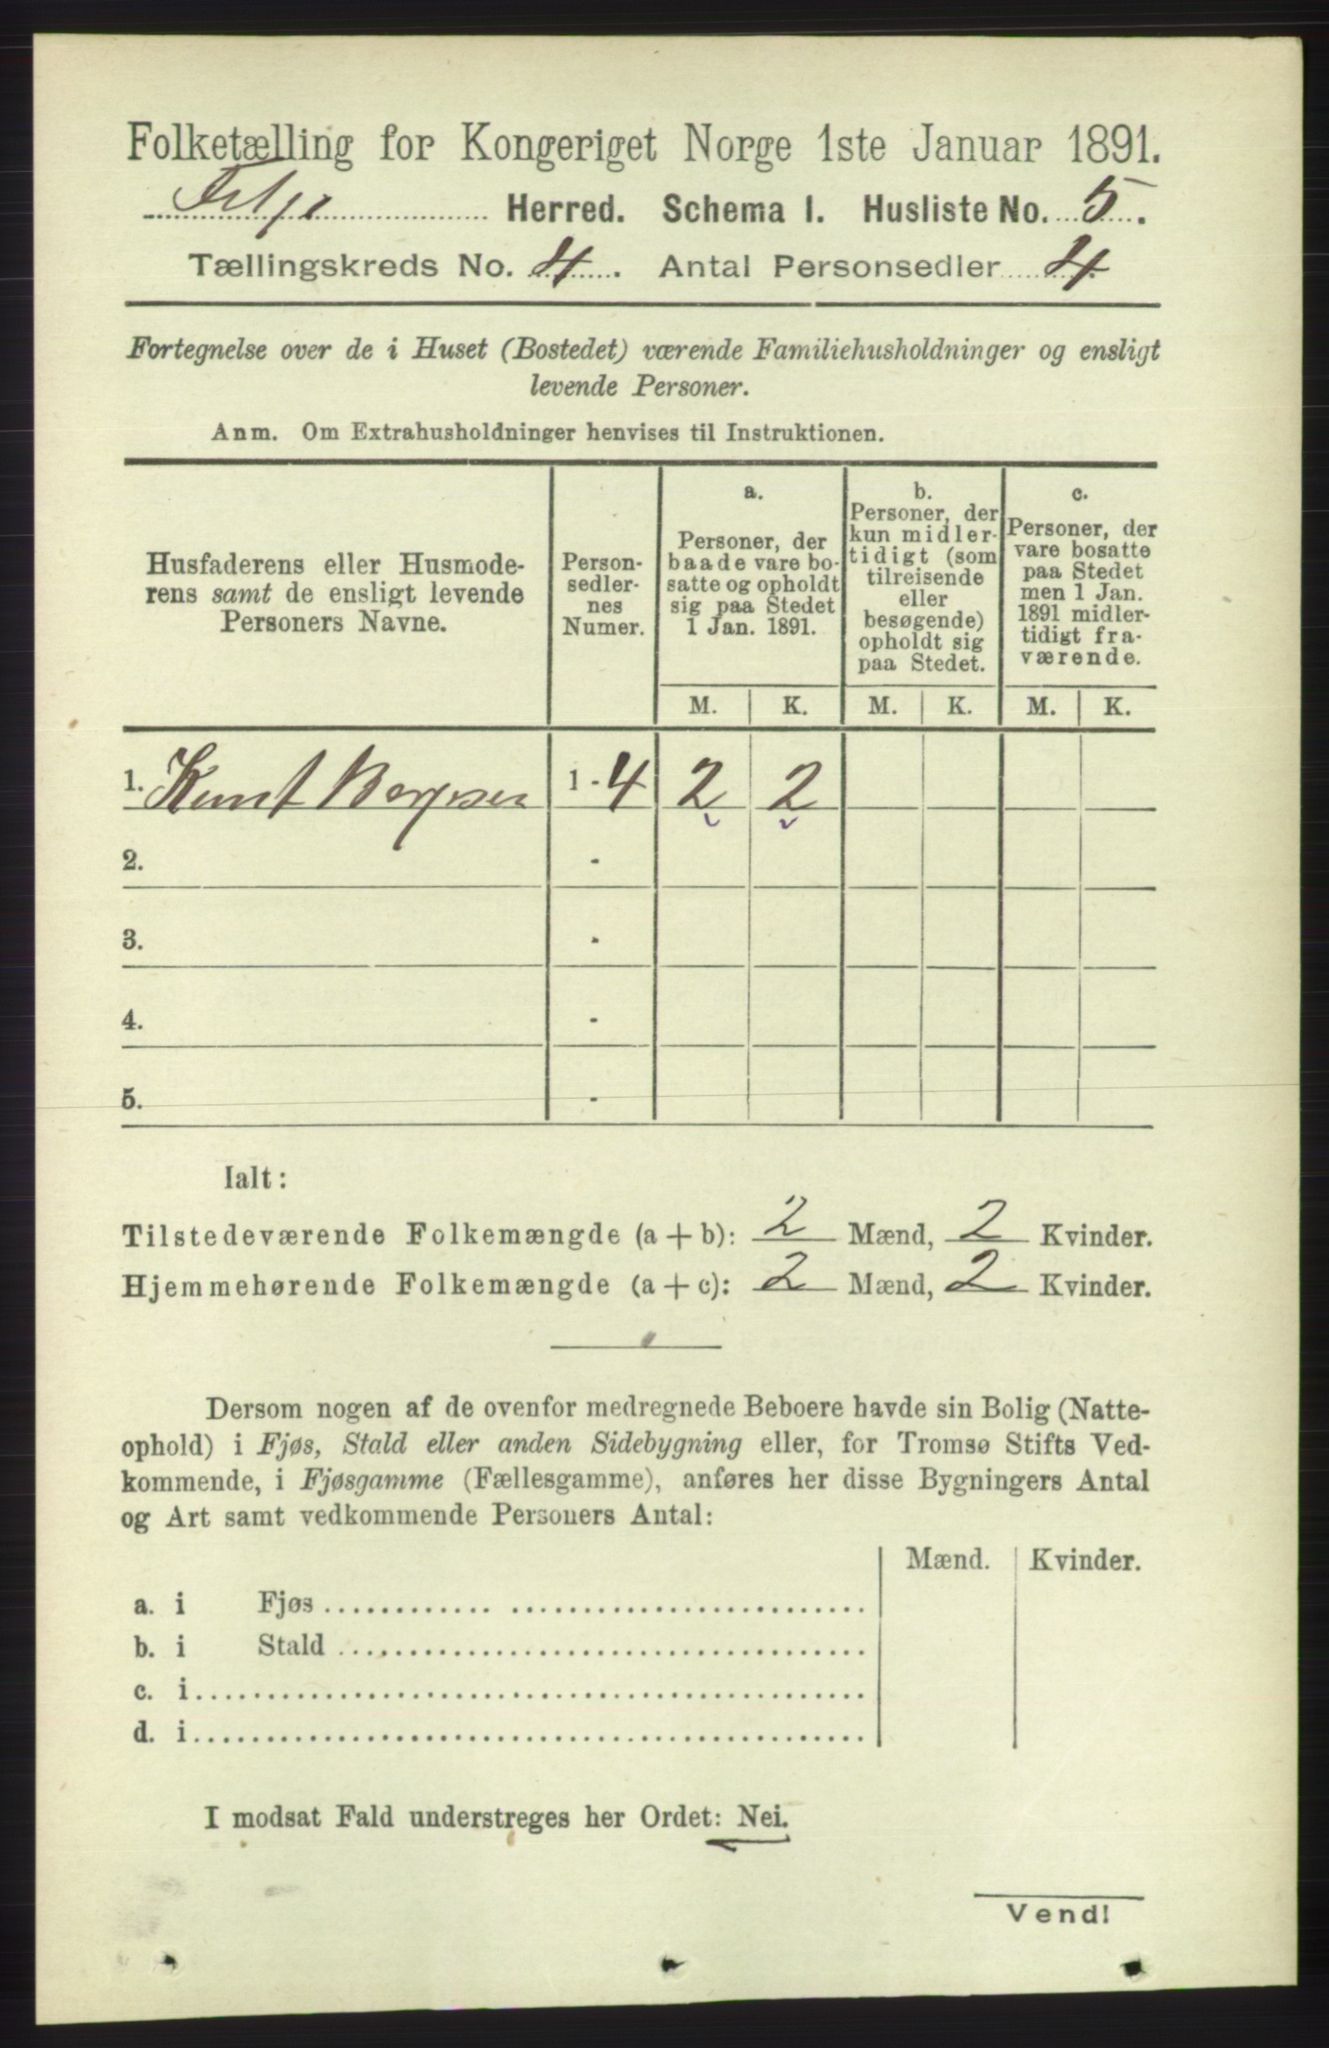 Folketælling for Kongeriget Norge 1ste Januar 1891.
Fitje Herred. Schema I. Husliste No. 5.
Tællingskreds No. 4. Antal Personsedler 4
Fortegnelse over de i Huset (Bostedet) værende Familiehusholdninger og ensligt
levende Personer.
Anm. Om Extrahusholdninger henvises til Instruktionen.
Husfaderens eller Husmode-
rens samt de ensligt levende
Personers Navne.
Person-
sedler-
nes
Numer.
a.
Personer, der
baade vare bo-
satte og opholdt
sig paa Stedet
1 Jan. 1891.
b.
Personer, der
kun midler-
tidigt (som
tilreisende
eller
besøgende)
opholdt sig
paa Stedet.
c.
Personer, der
vare bosatte
paa Stedet
men 1 Jan.
1891 midler-
tidigt fra-
værende.
M. K. M. K. M. K.
1. Knut 1 - 4 2 2
2. -
3. -
4. -
5. -
Ialt:
Tilstedeværende Folkemængde (a + b): 2 Mænd, 2 Kvinder.
Hjemmehørende Folkemængde (a + c): 2 Mænd, 2 Kvinder.
Dersom nogen af de ovenfor medregnede Beboere havde sin Bolig (Natte-
ophold) i Fjøs, Stald eller anden Sidebygning eller, for Tromsø Stifts Ved-
kommende, i Fjøsgamme (Fællesgamme), anføres her disse Bygningers Antal
og Art samt vedkommende Personers Antal:
Mænd. Kvinder.
a. i Fjøs
b. i Stald
c. i
d. i
I modsat Fald understreges her Ordet: Nei.
Vend!